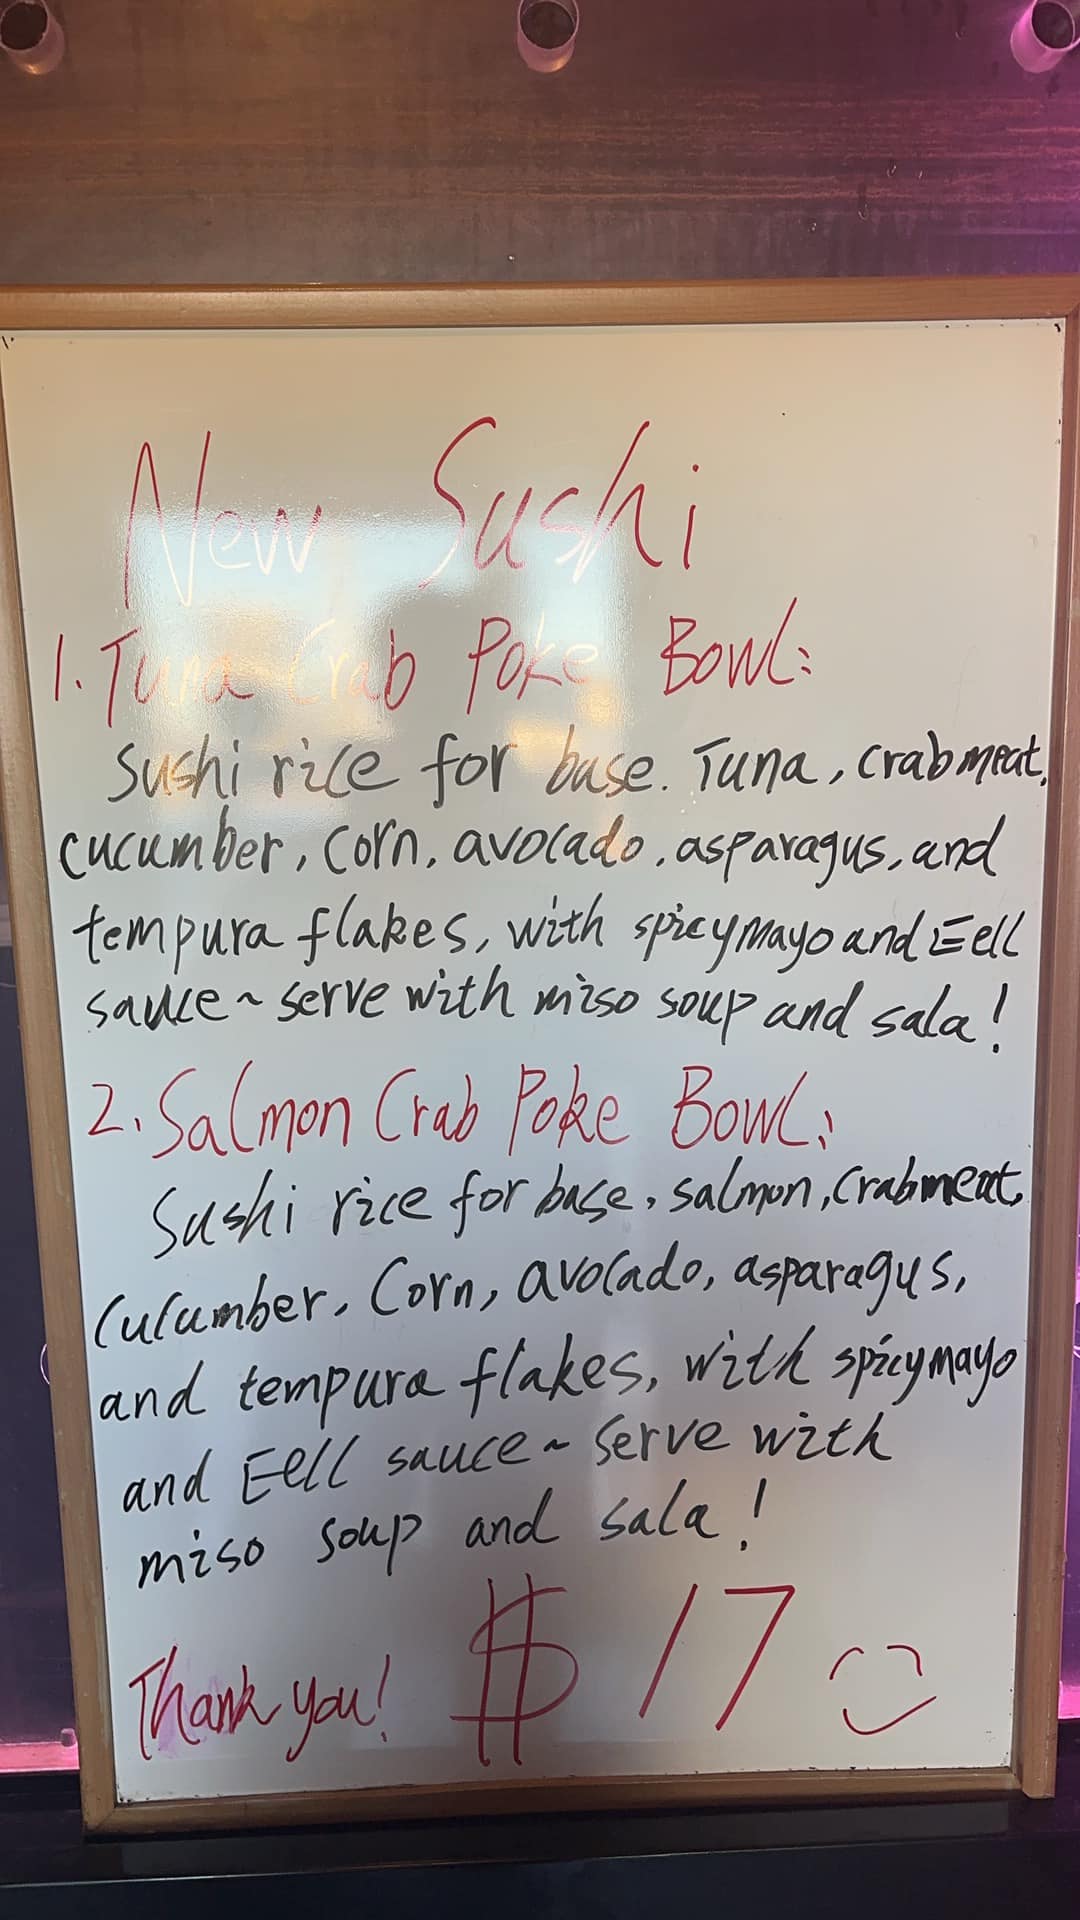 New Sushi
1. Tuna Crab Poke Bowl:
Sushi rice for base. Tuna, crabmeat,
cucumber, corn, avocado, asparagus, and
tempura flakes, with spicymayo and Eell
sauce ~ serve with miso soup and sala!
2. Salmon Crab Poke Bowl:
Sushi rice for base, salmon, crabmeat,
cucumber, Corn, avocado, asparagus,
and tempura flakes, with spicymayo
and Eell sauce ~ serve with
miso soup and sala!
Thank you! $17